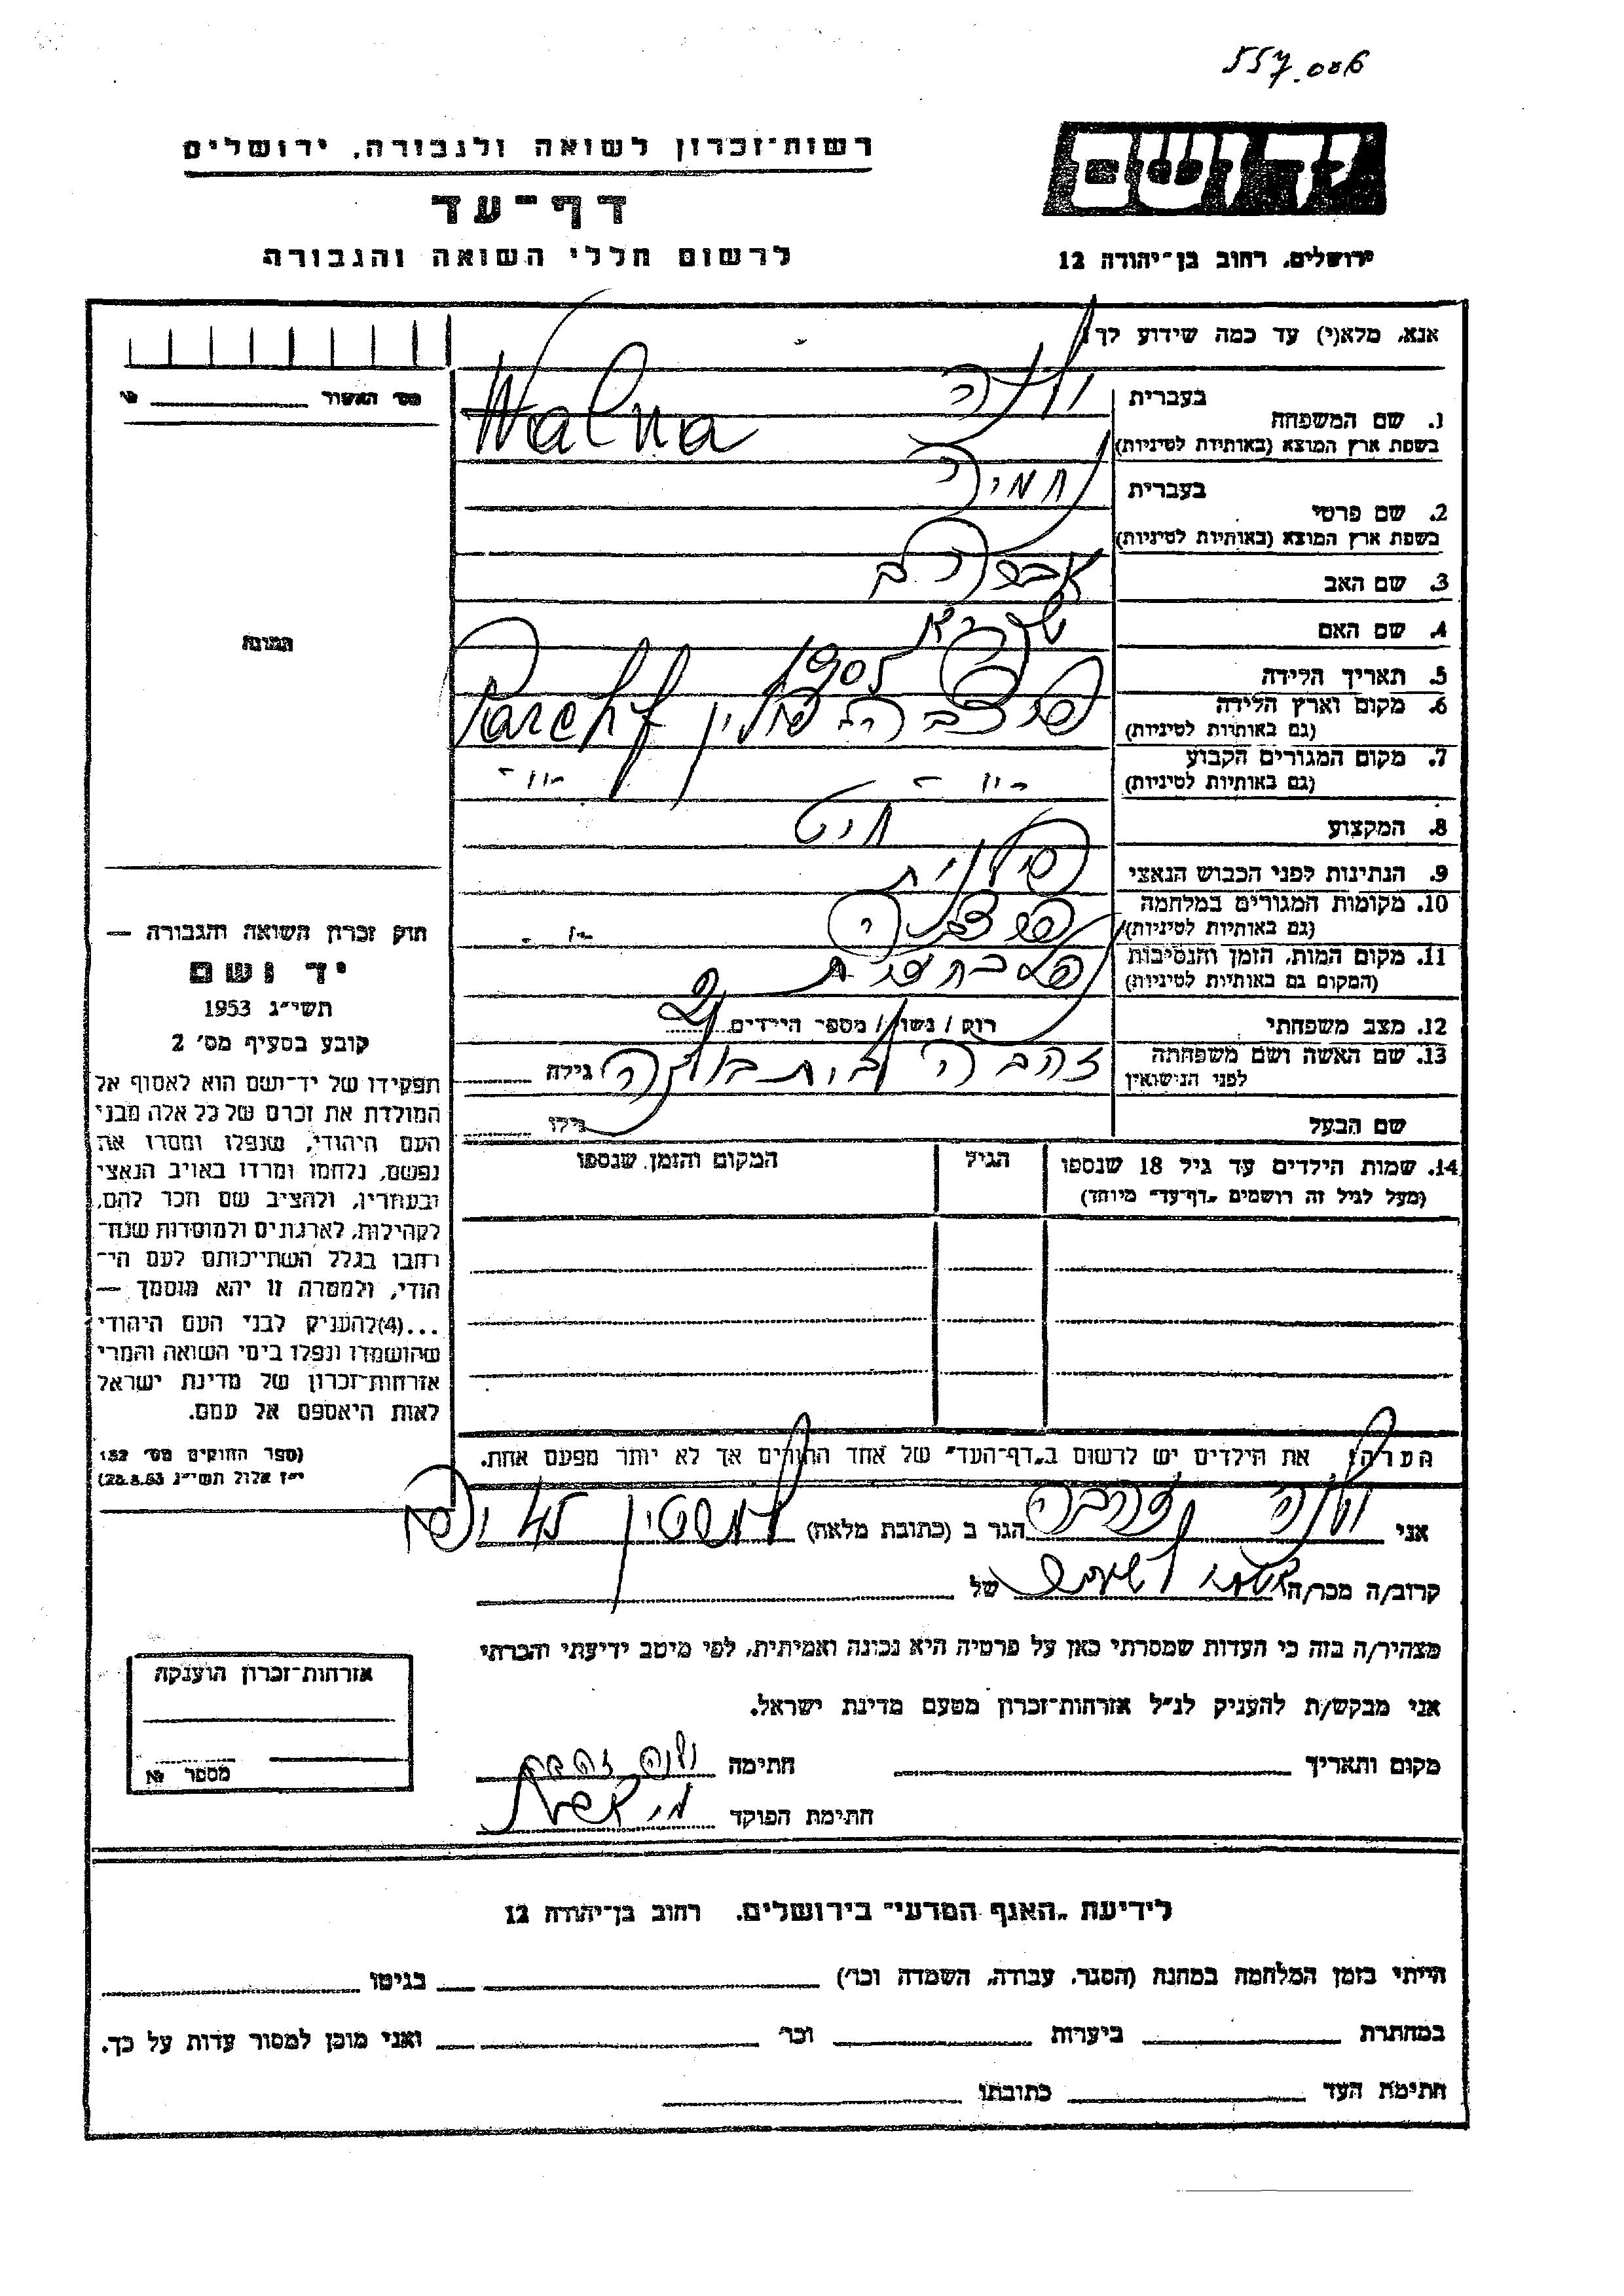 557.006
רשות־זכרון לשואה ולגבורה, ירושלים
דף־עד
לרשום חללי השואה והגבורה
יד ושם
ירושלים, רחוב בן־יהודה 12
אנא, מלא(י) עד כמה שידוע לך!
מס׳ האשור
1. שם המשפחה
בעברית
ולנה
בשפת ארץ המוצא (באותיות לטיניות)
Walna
2. שם פרטי
בעברית
בשפת ארץ המוצא (באותיות לטיניות)
3. שם האב
אברהם
4. שם האם
5. תאריך הלידה
1905
6. מקום וארץ הלידה
(גם באותיות לטיניות)
פולין
7. מקום המגורים הקבוע
(גם באותיות לטיניות)
-"- -"-
8. המקצוע
חיט
9. הנתינות לפני הכבוש הנאצי
פולנית
10. מקומות המגורים במלחמה
(גם באותיות לטיניות)
-"-
11. מקום המות, הזמן והנסיבות
(המקום גם באותיות לטיניות)
12. מצב משפחתי
רוק / נשוי / מספר הילדים
13. שם האשה ושם משפחתה
לפני הנישואין
זהבה לבית
גילה
שם הבעל
גילו
14. שמות הילדים עד גיל 18 שנספו
(מעל לגיל זה רושמים „דף־עד״ מיוחד)
הגיל
המקום והזמן שנספו
הערה: את הילדים יש לרשום ב„דף־העד״ של אחד ההורים אך לא יותר מפעם אחת.
התמונה
חוק זכרון השואה והגבורה —
יד ושם
תשי״ג 1953
קובע בסעיף מס׳ 2
תפקידו של יד־ושם הוא לאסוף אל
המולדת את זכרם של כל אלה מבני
העם היהודי, שנפלו ומסרו את
נפשם, נלחמו ומרדו באויב הנאצי
ובעוזריו, ולהציב שם וזכר להם,
לקהילות, לארגונים ולמוסדות שנח־
רבו בגלל השתייכותם לעם הי־
הודי, ולמטרה זו יהא מוסמך —
...(4) להעניק לבני העם היהודי
שהושמדו ונפלו בימי השואה והמרי
אזרחות־זכרון של מדינת ישראל
לאות היאספם אל עמם.
(ספר החוקים מס׳ 132
י״ז אלול תשי״ג 28.8.53)
אני ולנה זהבה הגר ב (כתובת מלאה)
קרוב/ה מכר/ה של
מצהיר/ה בזה כי העדות שמסרתי כאן על פרטיה היא נכונה ואמיתית, לפי מיטב ידיעתי והכרתי
אני מבקש/ת להעניק לנ״ל אזרחות־זכרון מטעם מדינת ישראל.
מקום ותאריך חתימה ולנה זהבה
חתימת הפוקד
אזרחות־זכרון הוענקה
מספר
לידיעת „האגף המדעי״ בירושלים, רחוב בן־יהודה 12
הייתי בזמן המלחמה במחנה (הסגר, עבודה, השמדה וכו׳) בגיטו
במחתרת ביערות וכו׳ ואני מוכן למסור עדות על כך.
חתימת העד כתובתו